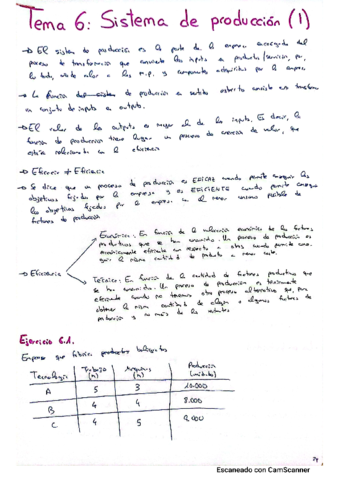 Tema 6: Sistema de producción (1)
→ El sistema de producción es la parte de la empresa encargada del
proceso de transformación que convierte los inputs a producto/servicio, por
lo tanto, añade valor a las m.p. y componentes adquiridos por la empresa.
→ La función del sistema de producción a sentido estricto consiste en transformar
un conjunto de inputs a outputs.
→ El valor de los outputs es mayor al de los inputs. Es decir, la
función de producción tiene lugar un proceso de creación de valor, que
está relacionado con la eficiencia
→ Eficiencia ≠ Eficacia
→ Se dice que un proceso de producción es EFICAZ cuando permite conseguir los
objetivos fijados por la empresa y es EFICIENTE cuando permite conseguir
los objetivos fijados por la empresa con el menor consumo posible de
factores de producción
→ Eficiencia
Económica: En función de la valoración económica de los factores
productivos que se han consumido. Un proceso de producción es
económicamente eficiente con respecto a otros cuando permite conse-
guir la misma cantidad de producto a menor coste.
Técnica: En función de la cantidad de factores productivos que
se han consumido. Un proceso de producción es técnicamente
eficiente cuando no tenemos otro proceso alternativo que, para
obtener la misma cantidad de algún o algunos factores de
producción y no más de los restantes
Ejercicio 6.1.
Empresa que fabrica productos
Tecnología Trabajo (h) Máquinas (h) Producción (unidades)
A 5 3 10.000
B 4 4 8.000
C 4 5 9.000
Escaneado con CamScanner